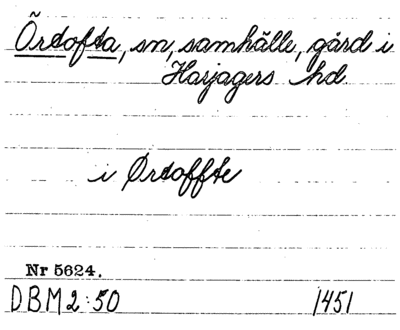 Örtofta, sn, samhälle, gård i
Harjagers hd.
i Ørtoffte
Nr 5624.
DBM 2:50 1451